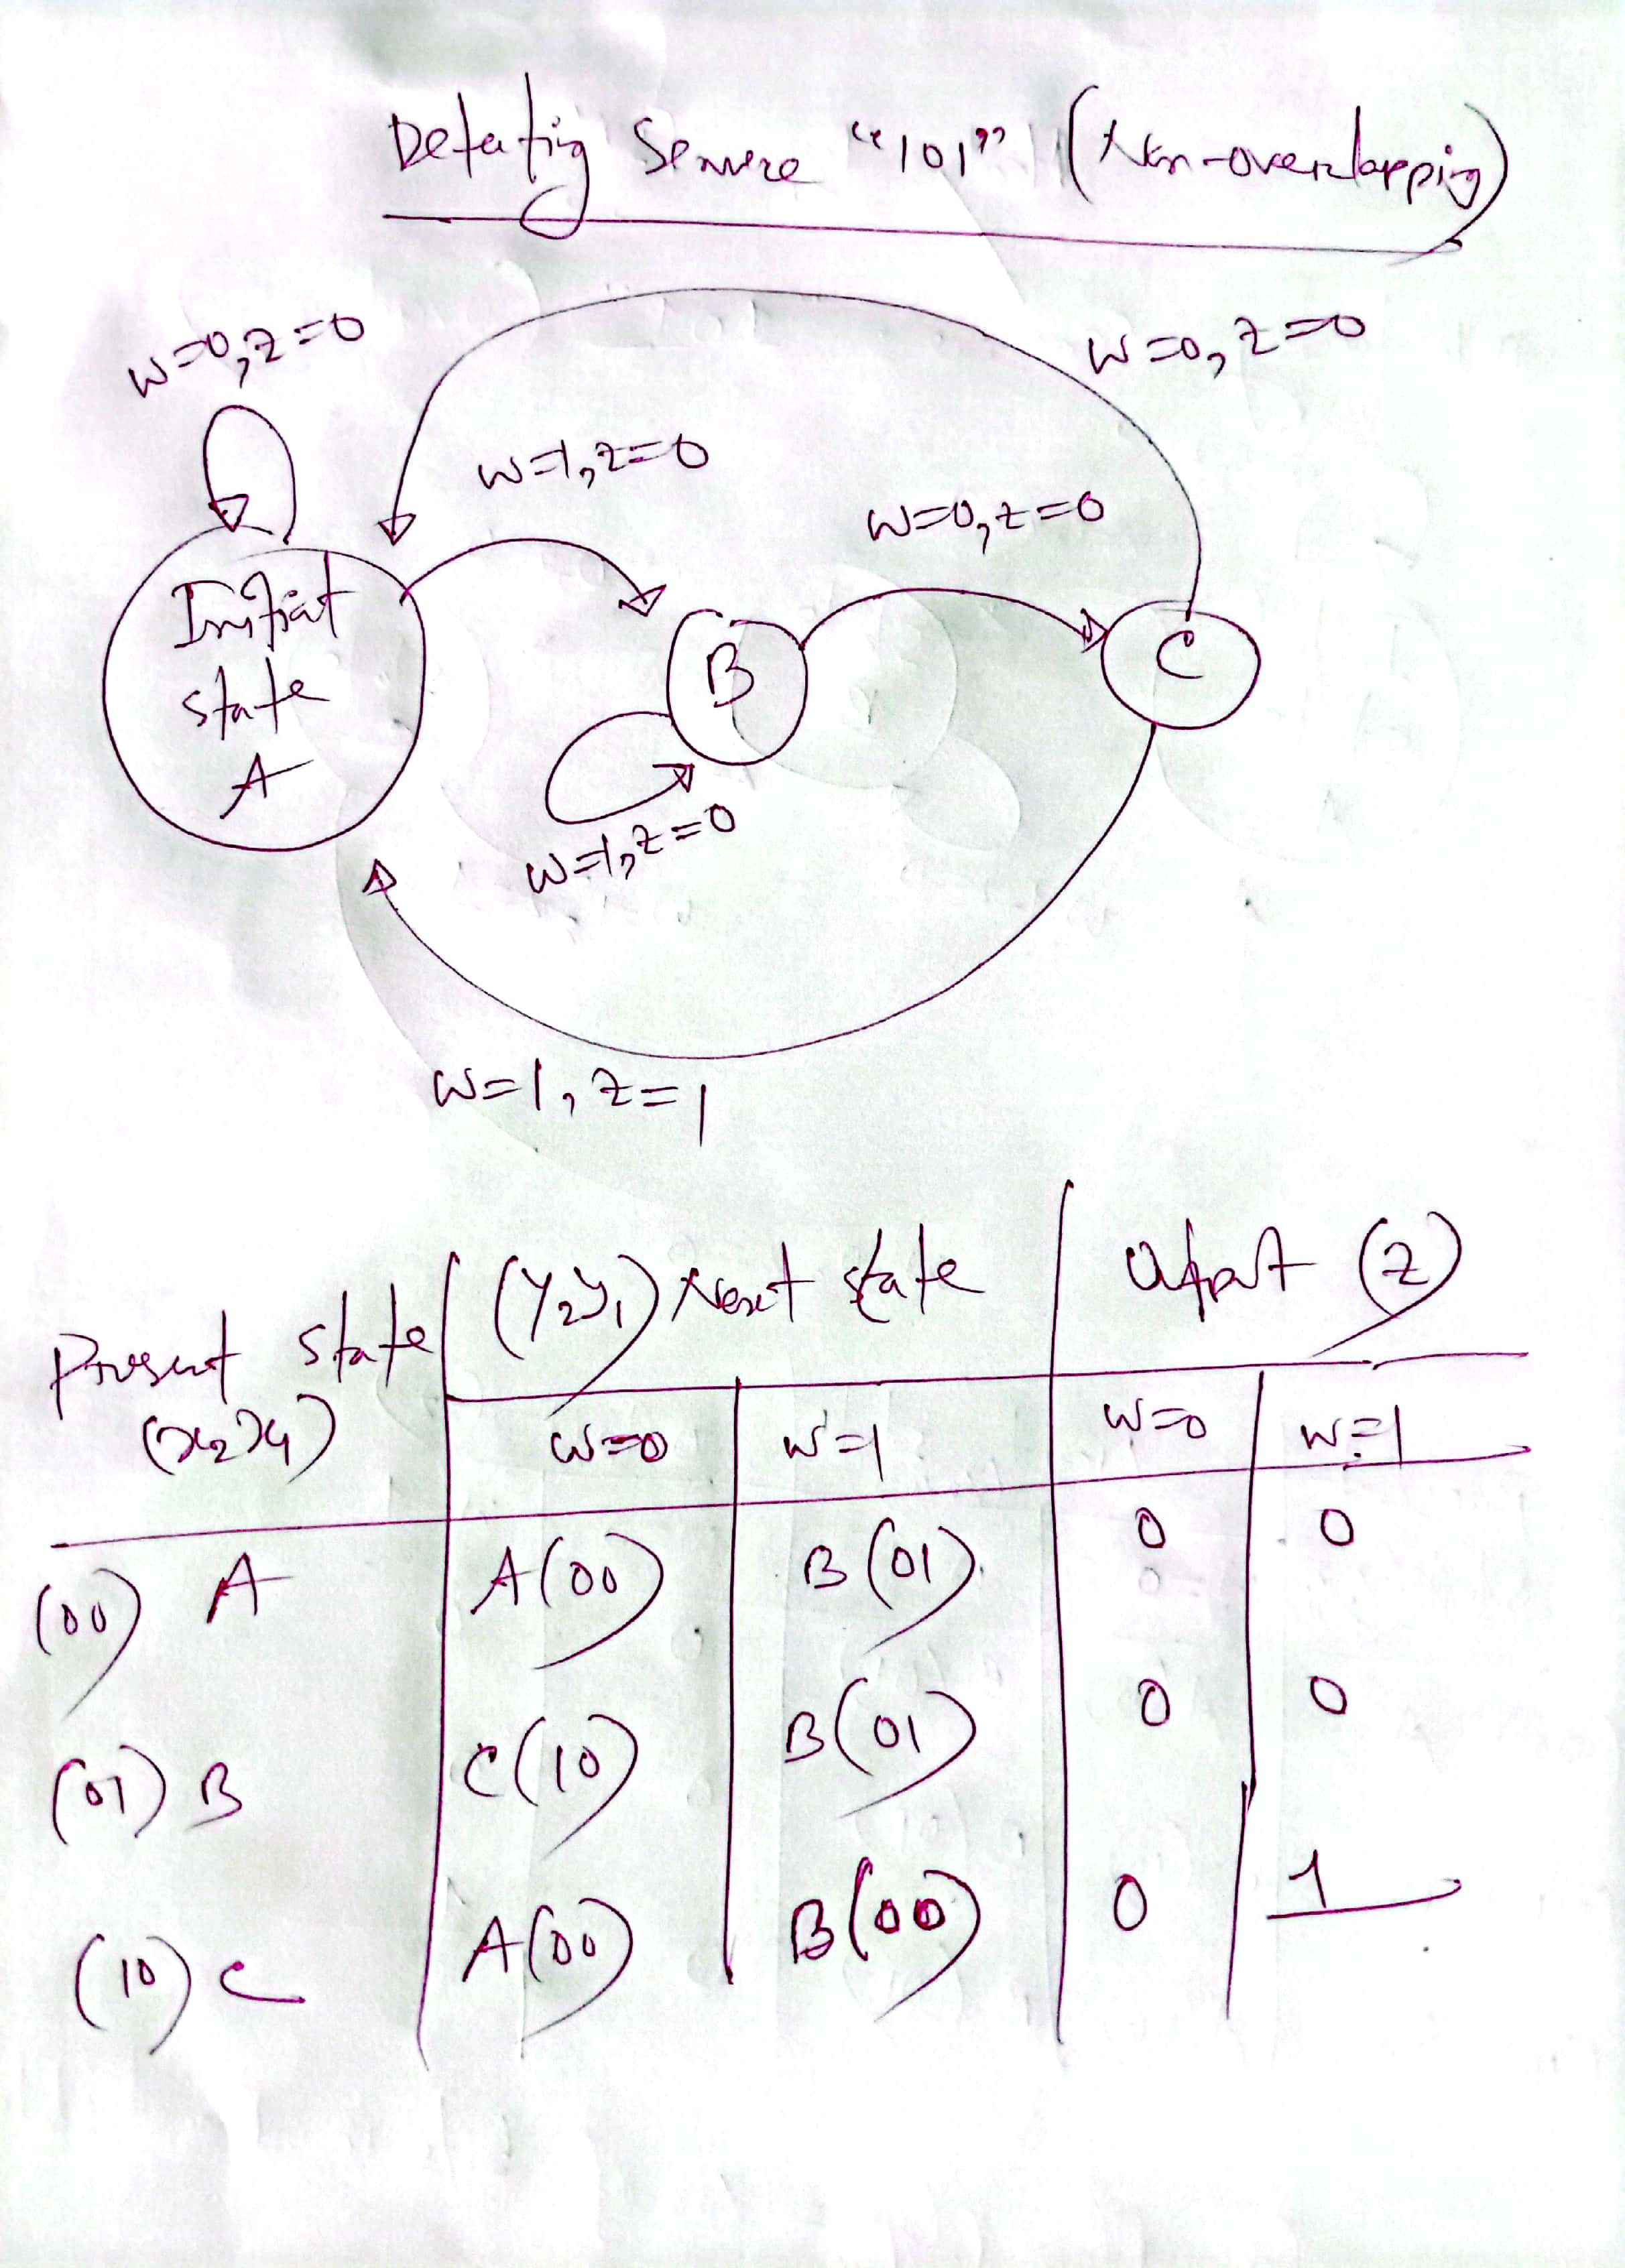 Detecting Sequence "101" (Non-overlapping)
w=0, z=0
w=0, z=0
w=1, z=0
w=0, z=0
Initial
state
A
B
C
w=1, z=0
w=1, z=1
Present state
(x₂x₁)
(Y₂Y₁) Next state
Output (z)
w=0 w=1 w=0 w=1
(00) A A(00) B(01) 0 0
(01) B C(10) B(01) 0 0
(10) C A(00) B(00) 0 1